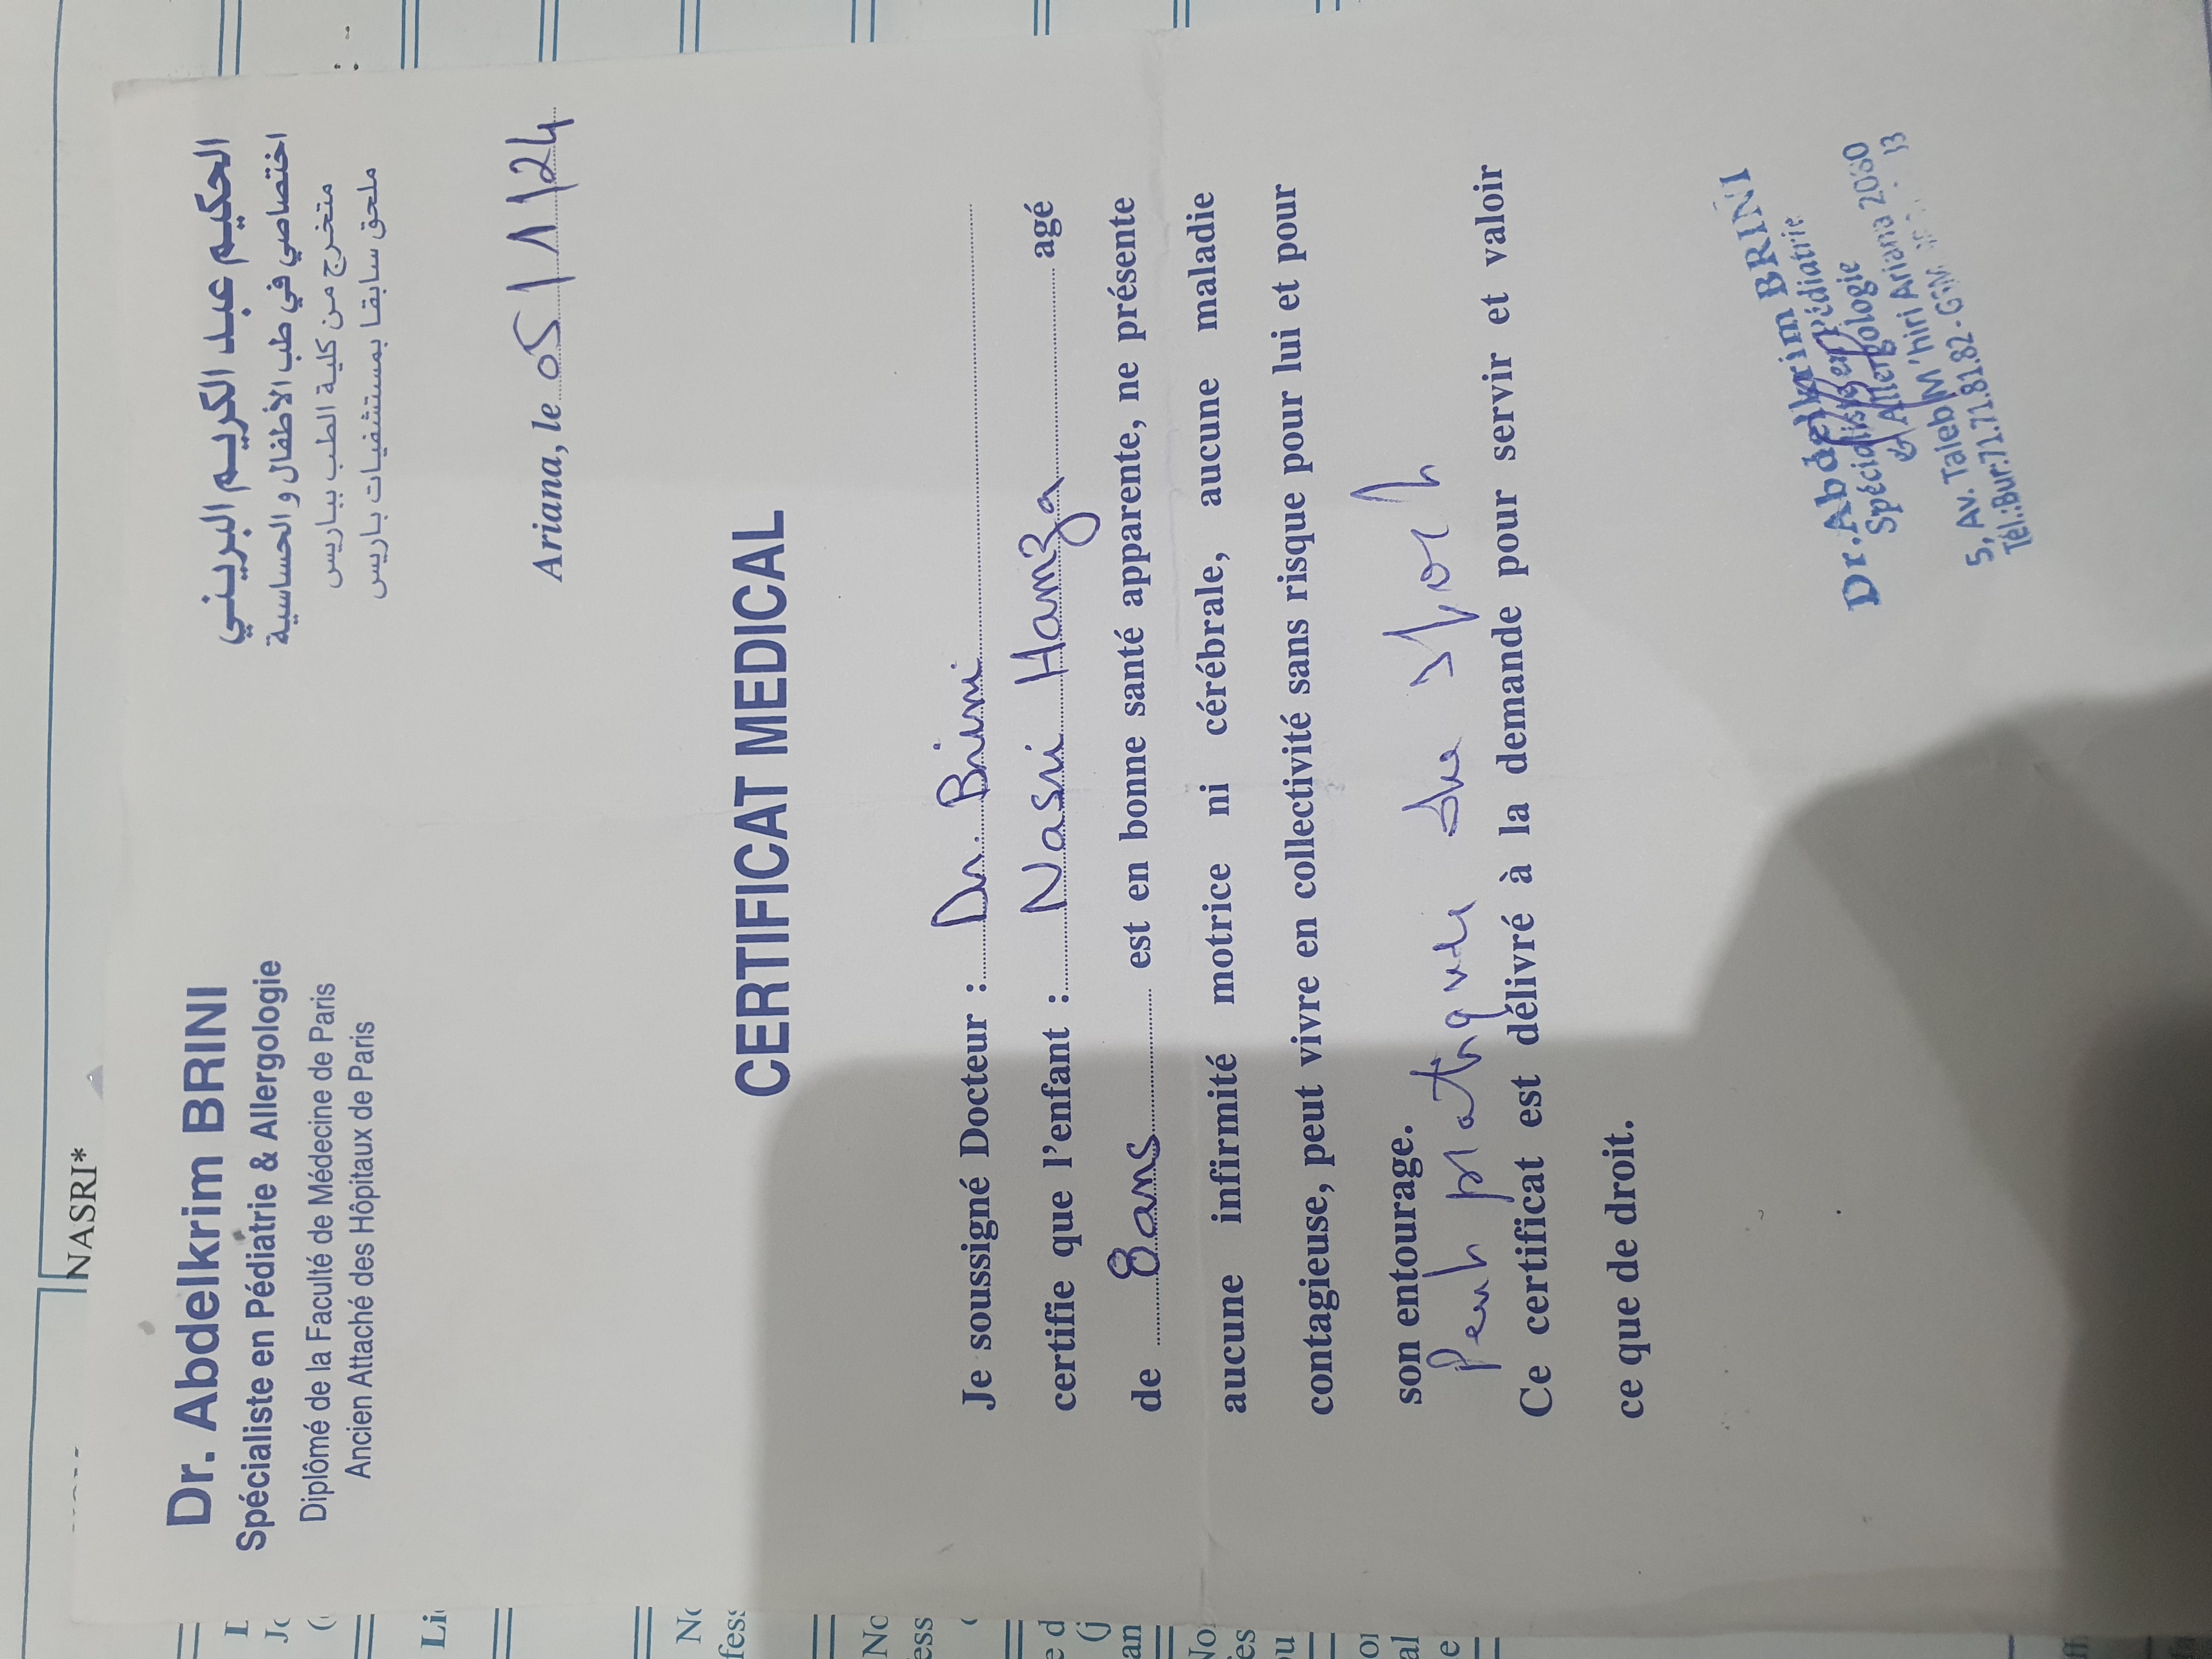 NASRI*
Dr. Abdelkrim BRINI
Spécialiste en Pédiatrie & Allergologie
Diplômé de la Faculté de Médecine de Paris
Ancien Attaché des Hôpitaux de Paris
الحكيم عبد الكريم البريني
اختصاصي في طب الأطفال و الحساسية
متخرج من كلية الطب بباريس
ملحق سابقا بمستشفيات باريس
Ariana, le 05/1/24
CERTIFICAT MEDICAL
Je soussigné Docteur : Dr. Brini
certifie que l'enfant : Nasri Hamza agé
de 8 ans est en bonne santé apparente, ne présente
aucune infirmité motrice ni cérébrale, aucune maladie
contagieuse, peut vivre en collectivité sans risque pour lui et pour
son entourage.
Peut pratiquer du sport
Ce certificat est délivré à la demande pour servir et valoir
ce que de droit.
Dr. Abdelkrim BRINI
Spécialiste en Pédiatrie
& Allergologie
5, Av. Taieb M'hiri Ariana 2080
Tél.:Bur:71.71.81.82 - GSM